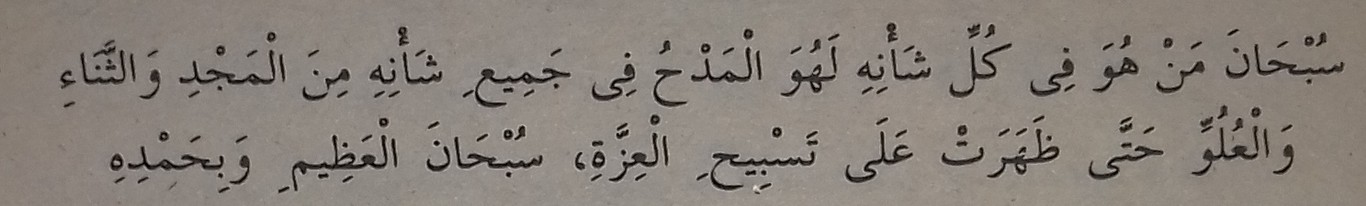 سُبْحَانَ مَنْ هُوَ فِى كُلِّ شَأْنِهِ لَهُوَ الْمَدْحُ فِى جَمِيعِ شَأْنِهِ مِنَ الْمَجْدِ وَالثَّنَاءِ
وَالْعُلُوِّ حَتَّى ظَهَرَتْ عَلَى تَسْبِيحِ الْعِزَّةِ، سُبْحَانَ الْعَظِيمِ وَبِحَمْدِهِ